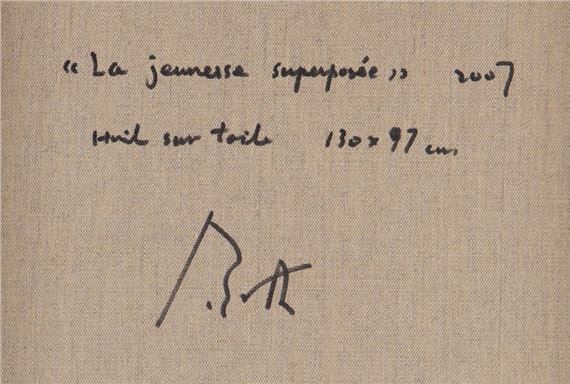 « La jeunesse superposée » 2007
Huil sur toile 130 x 97 cm.